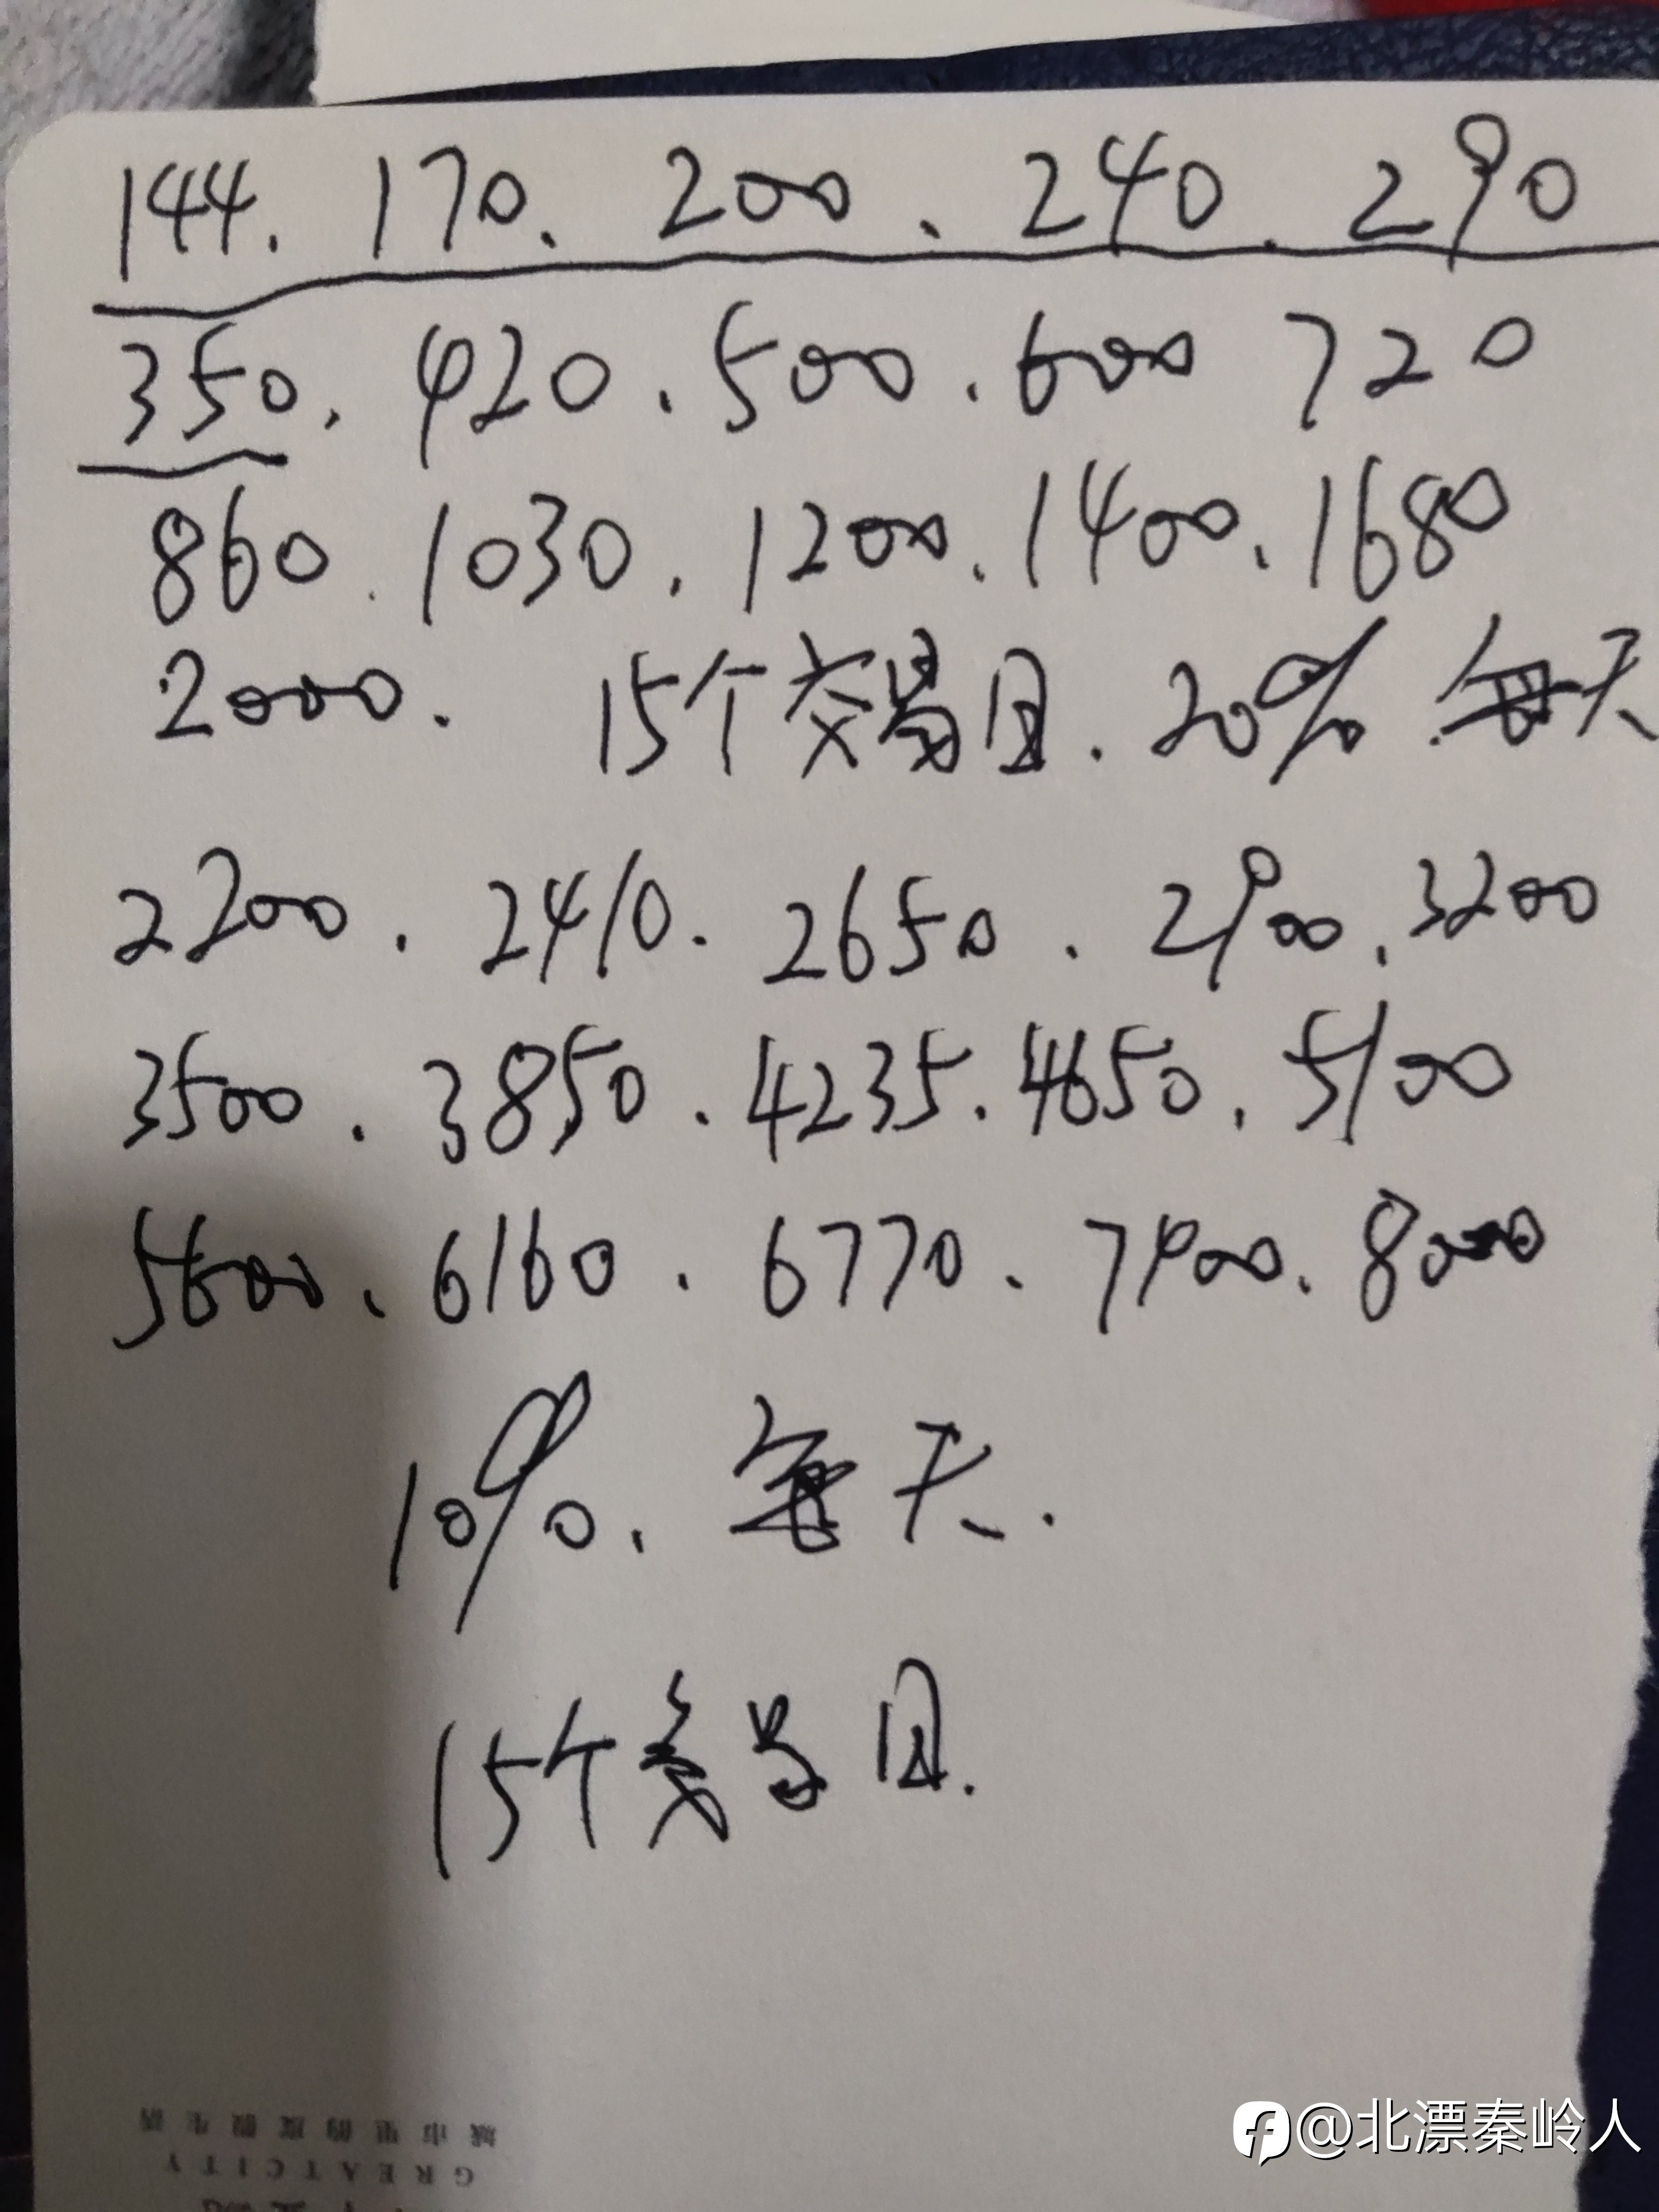 144. 170. 200. 240. 290
350. 420. 500. 600 720
860. 1030. 1200. 1400. 1680
2000. 15个交易日. 20% 每天
2200. 2410. 2650. 2900. 3200
3500. 3850. 4235. 4650. 5100
5600. 6160. 6770. 7400. 8000
10%. 每天.
15个交易日.
城市里的度假生活
GREATCITY
@北漂秦岭人